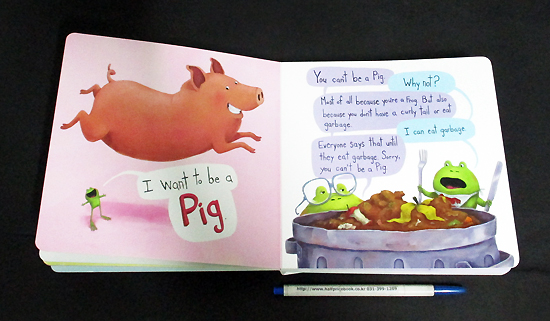 I want to be a
Pig.
You can't be a Pig.
Why not?
Most of all because you're a Frog. But also
because you don't have a curly tail or eat
garbage.
I can eat garbage.
Everyone says that until
they eat garbage. Sorry,
you can't be a Pig.
http://www.halfpricebook.co.kr 031-399-1289